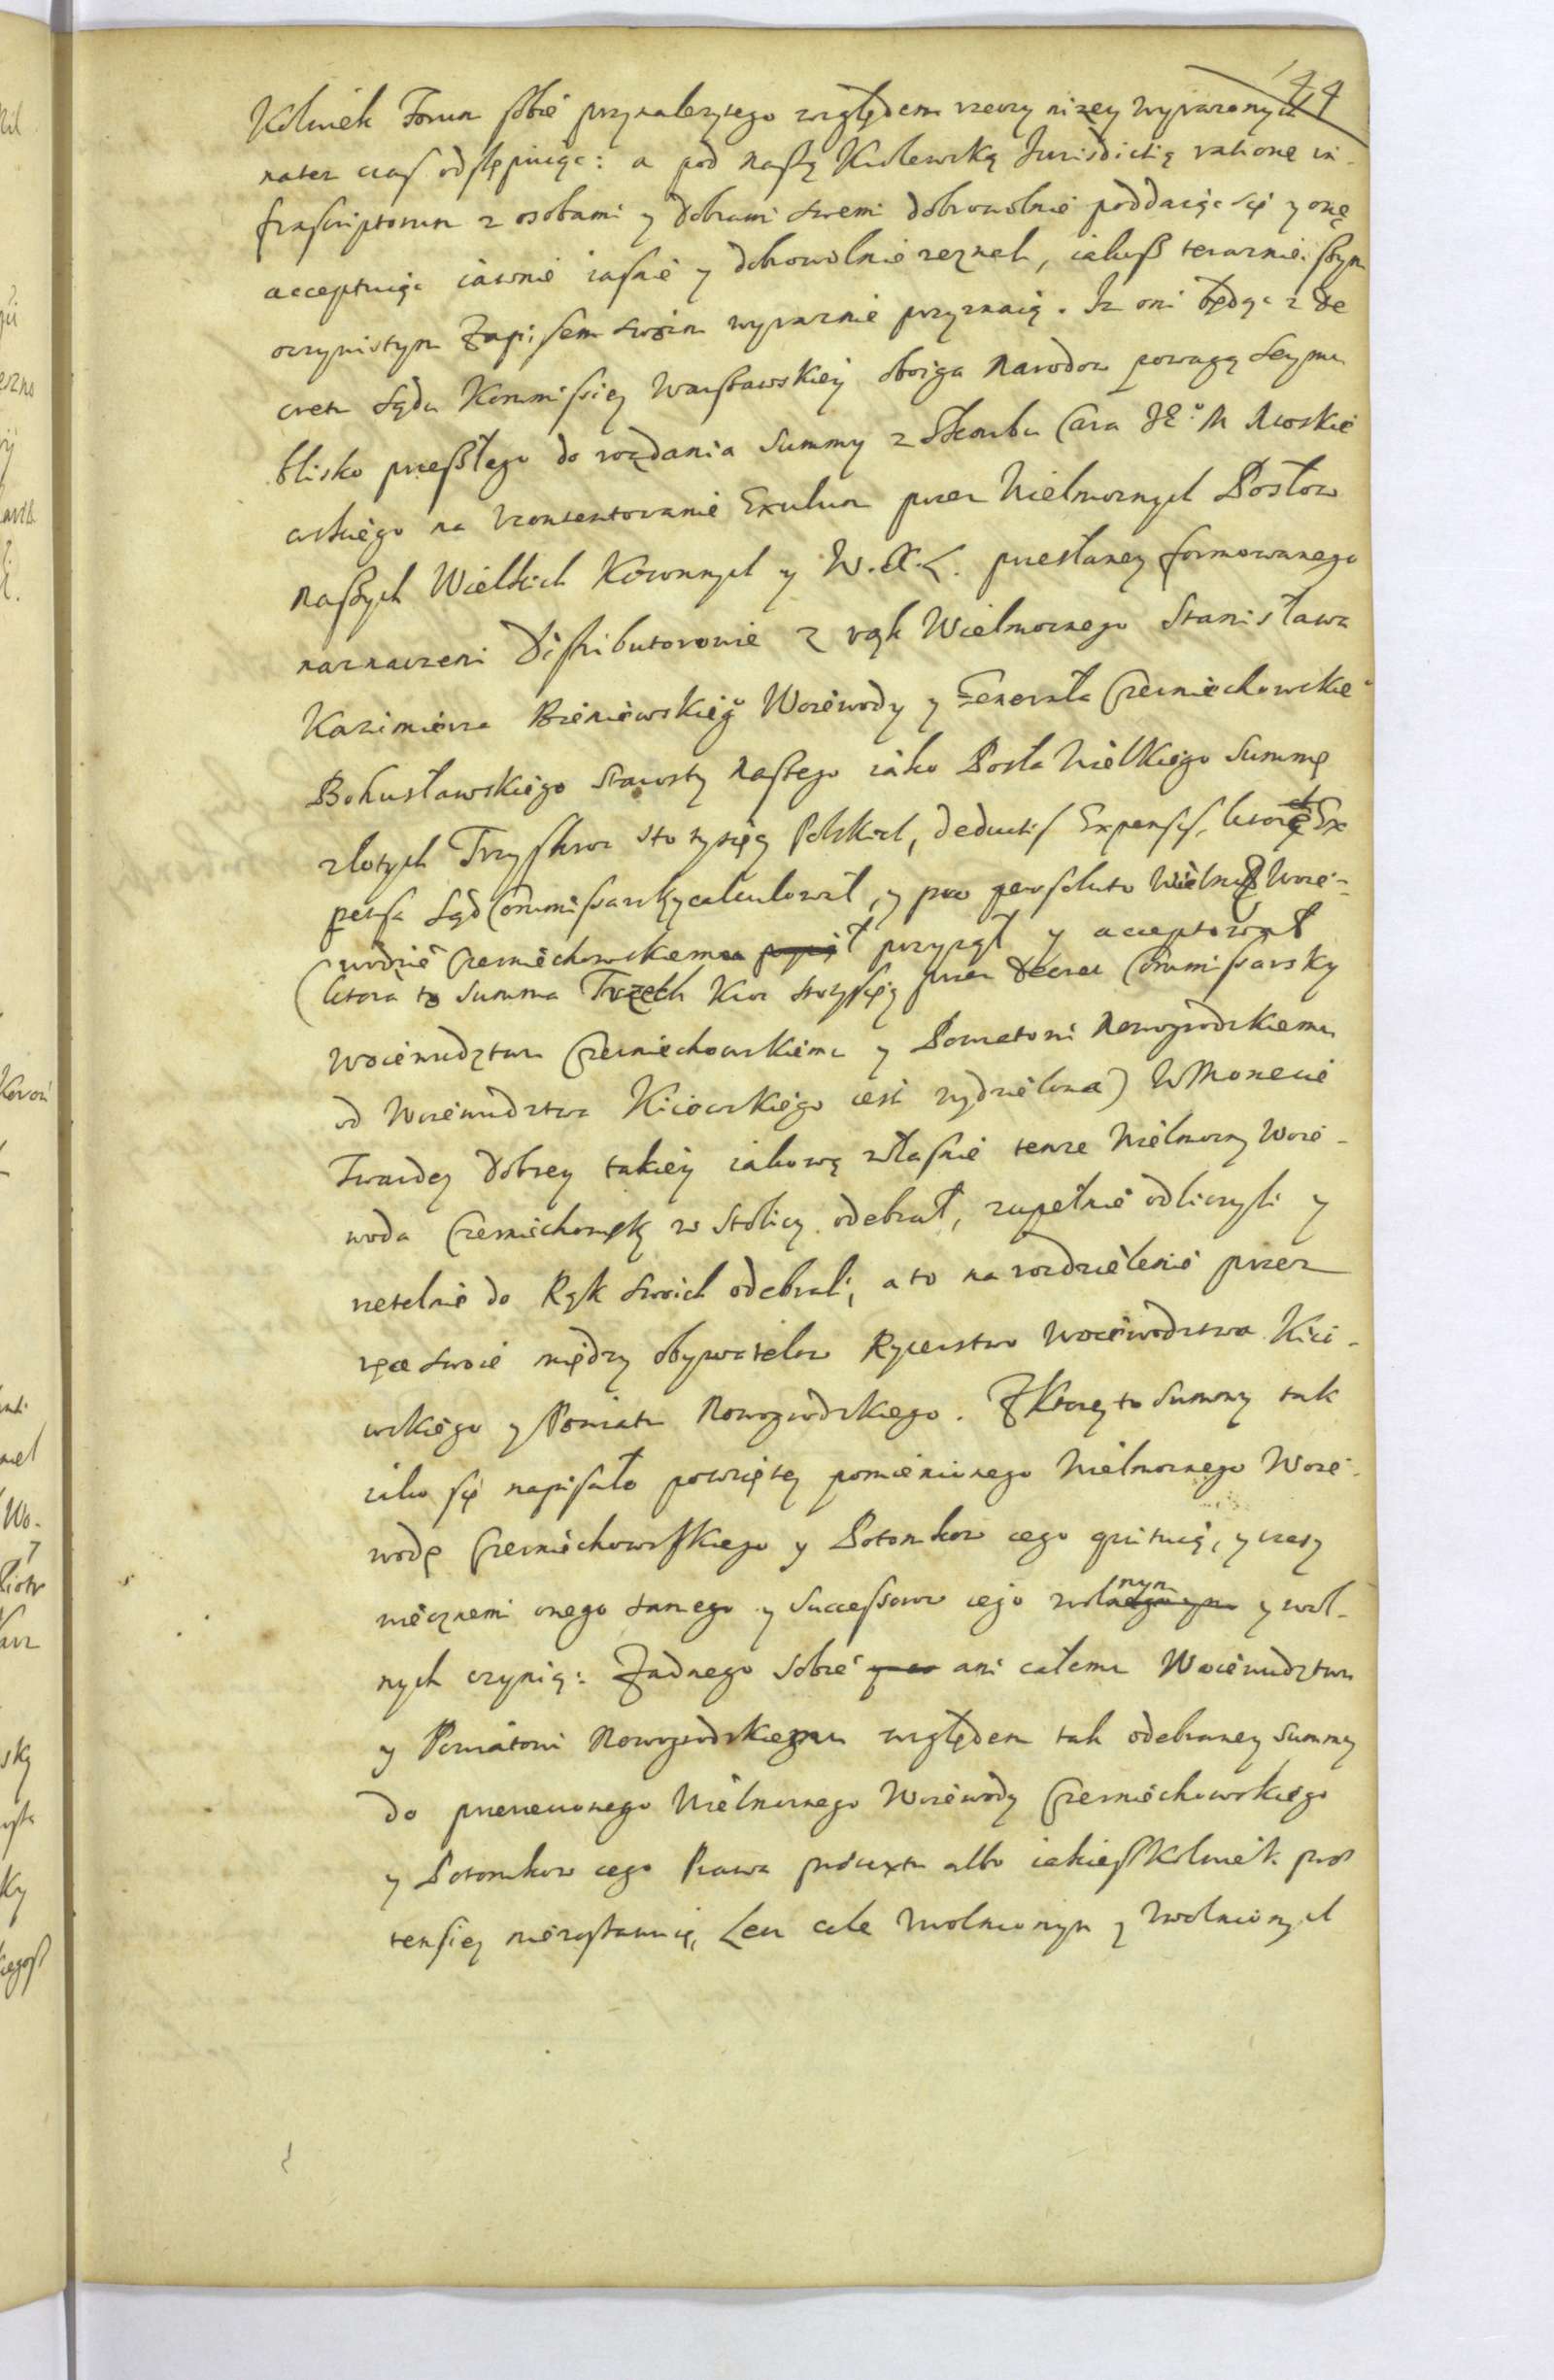 44
Kolwiek Forum sobie przynalezytego względem rzeczy nizey wyrazonych
naten czas odstępuiąc: a pod naszą Krolewską Jurisdictią ratione in-
frascriptorum z osobami y dobrami swemi dobrowolnie poddaiąc się y onę
acceptuiąc iawnie iasnie y dobrowolnie zeznali, iakosz teraznieiszym
oczywistym Zapisem swoim wyraznie przyznaią. Iz oni będąc z De
cretu Sądu Kommissiey Warszawskiey oboiga Narodow powagą Seymu
blisko przeszłego do rozdania Summy z Skarbu Cara JE° M Moskie
wskiego na kontentowanie Exulum przez Wielmoznych Posłow
naszych Wielkich Koronnych y W.X.L. przesłaney formowanego
naznaczeni Distributorowie z rąk Wielmoznego Stanisława
Kazimierza Bieniewskieg° Woiewody y Generała Czerniechowskie°
Bohusławskiego Starosty naszego iako Posła Wielkiego Summę
złotych Trzykroc sto tysięcy Polskich, deductis Expensis, ktore Ex
pensa Sąd Commissarsky calculował, y pro persoluto Wielmoż Woie-
wodzie Czerniechowskiemu przyiął y acceptował
(ktora to Summa Trzech Kroc stotysięcy przez Decret Commissarsky
Woiewudztwu Czerniechowskiemu y Powiatowi Nowogrodzkiemu
od Woiewudztwa Kiiowskiego iest wydzielona) W Monecie
Twardey Dobrey takiey iakową własnie tenze Wielmozny Woie-
woda Czerniechowsky w Stolicy odebrał, zupełnie odliczyli y
rzetelnie do Rąk swoich odebrali, a to na rozdzielenie przez
ręce swoie między obywatelow Rycerstwo Woiewodztwa Kiio-
wskiego y Powiatu Nowogrodzkiego. Z Ktorey to Summy tak
iako się napisało powziętey pomienionego Wielmoznego Woie-
wodę Czerniechowskiego y Potomkow iego quituią, y czasy
wiecznemi onego samego y Successorow iego wolnym y wol-
nych czynią: Zadnego sobie ani całemu Woiewudztwu
y Powiatowi Nowogrodzkiemu względem tak odebraney Summy
do przerzeczonego Wielmoznego Woiewody Czerniechowskiego
y Potomkow iego Prawa praetextu albo iakieyszkolwiek pre
tensiey niezostawuią, Lecz cale Wolnionym y Wolnionych